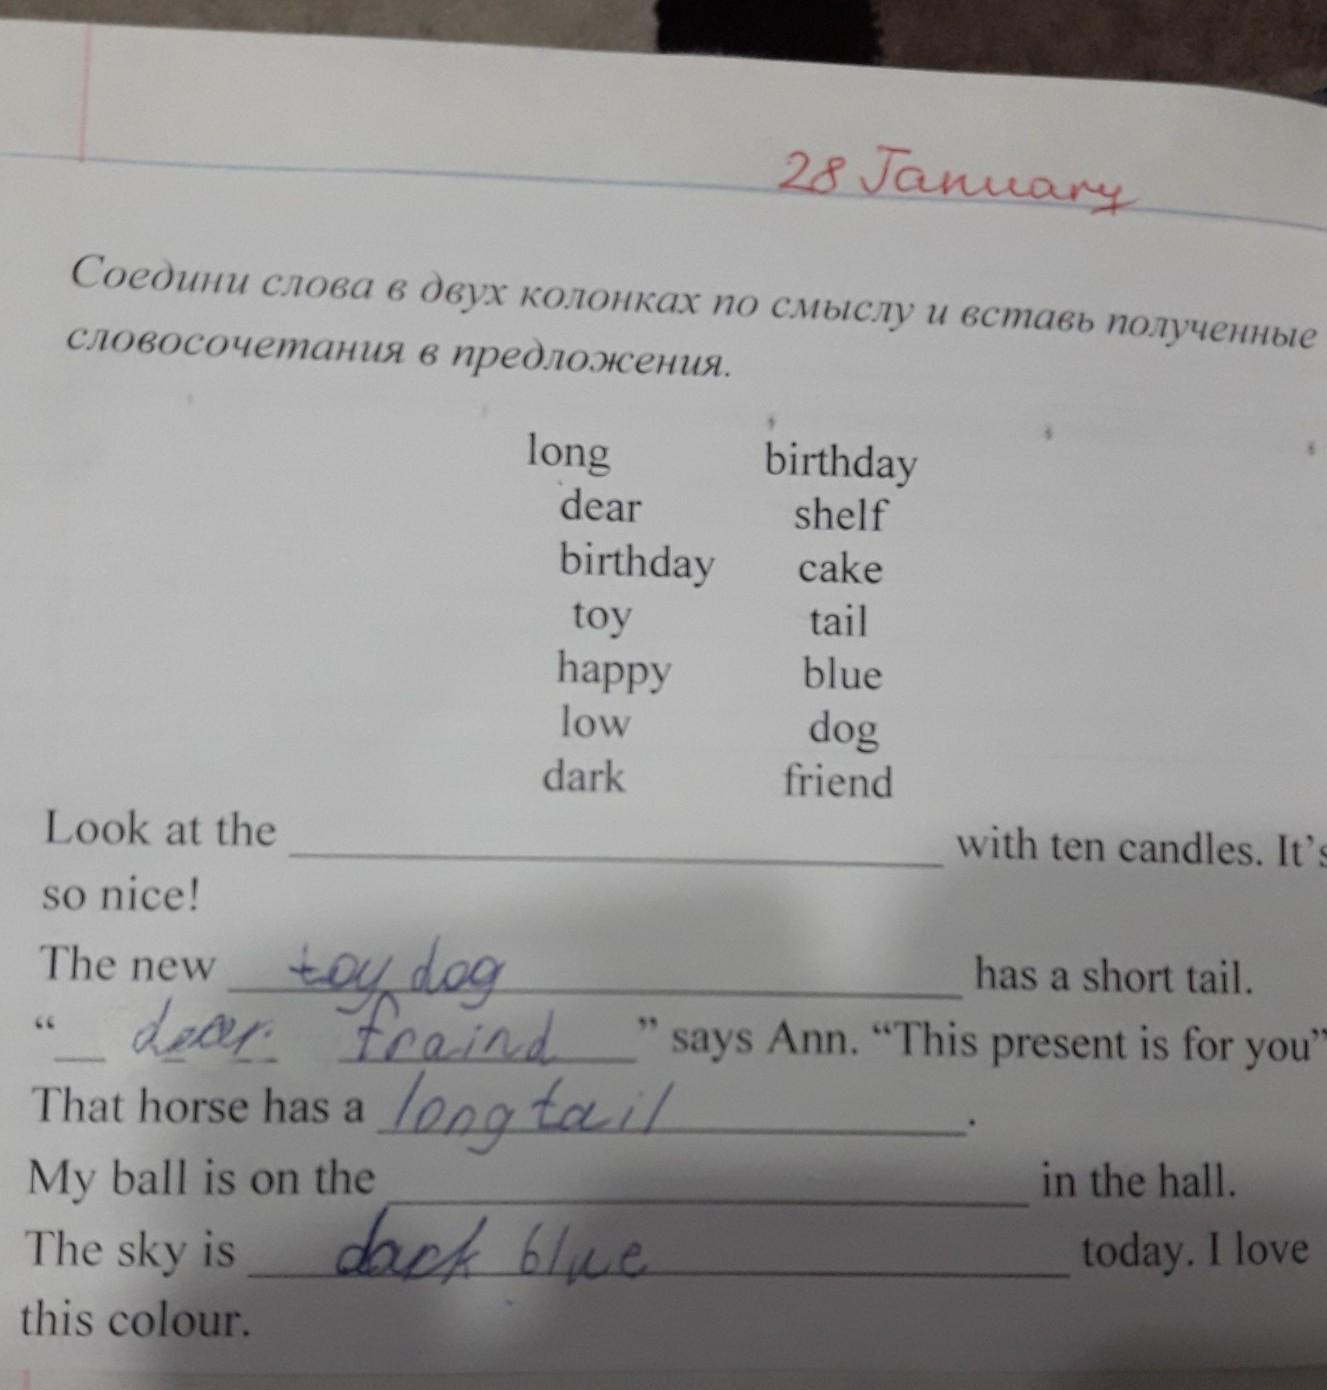 28 January
Соедини слова в двух колонках по смыслу и вставь полученные
словосочетания в предложения.
long birthday
dear shelf
birthday cake
toy tail
happy blue
low dog
dark friend
Look at the ____ with ten candles. It's
so nice!
The new toy dog has a short tail.
“ dear fraind ” says Ann. “This present is for you”
That horse has a long tail .
My ball is on the ____ in the hall.
The sky is dark blue today. I love
this colour.